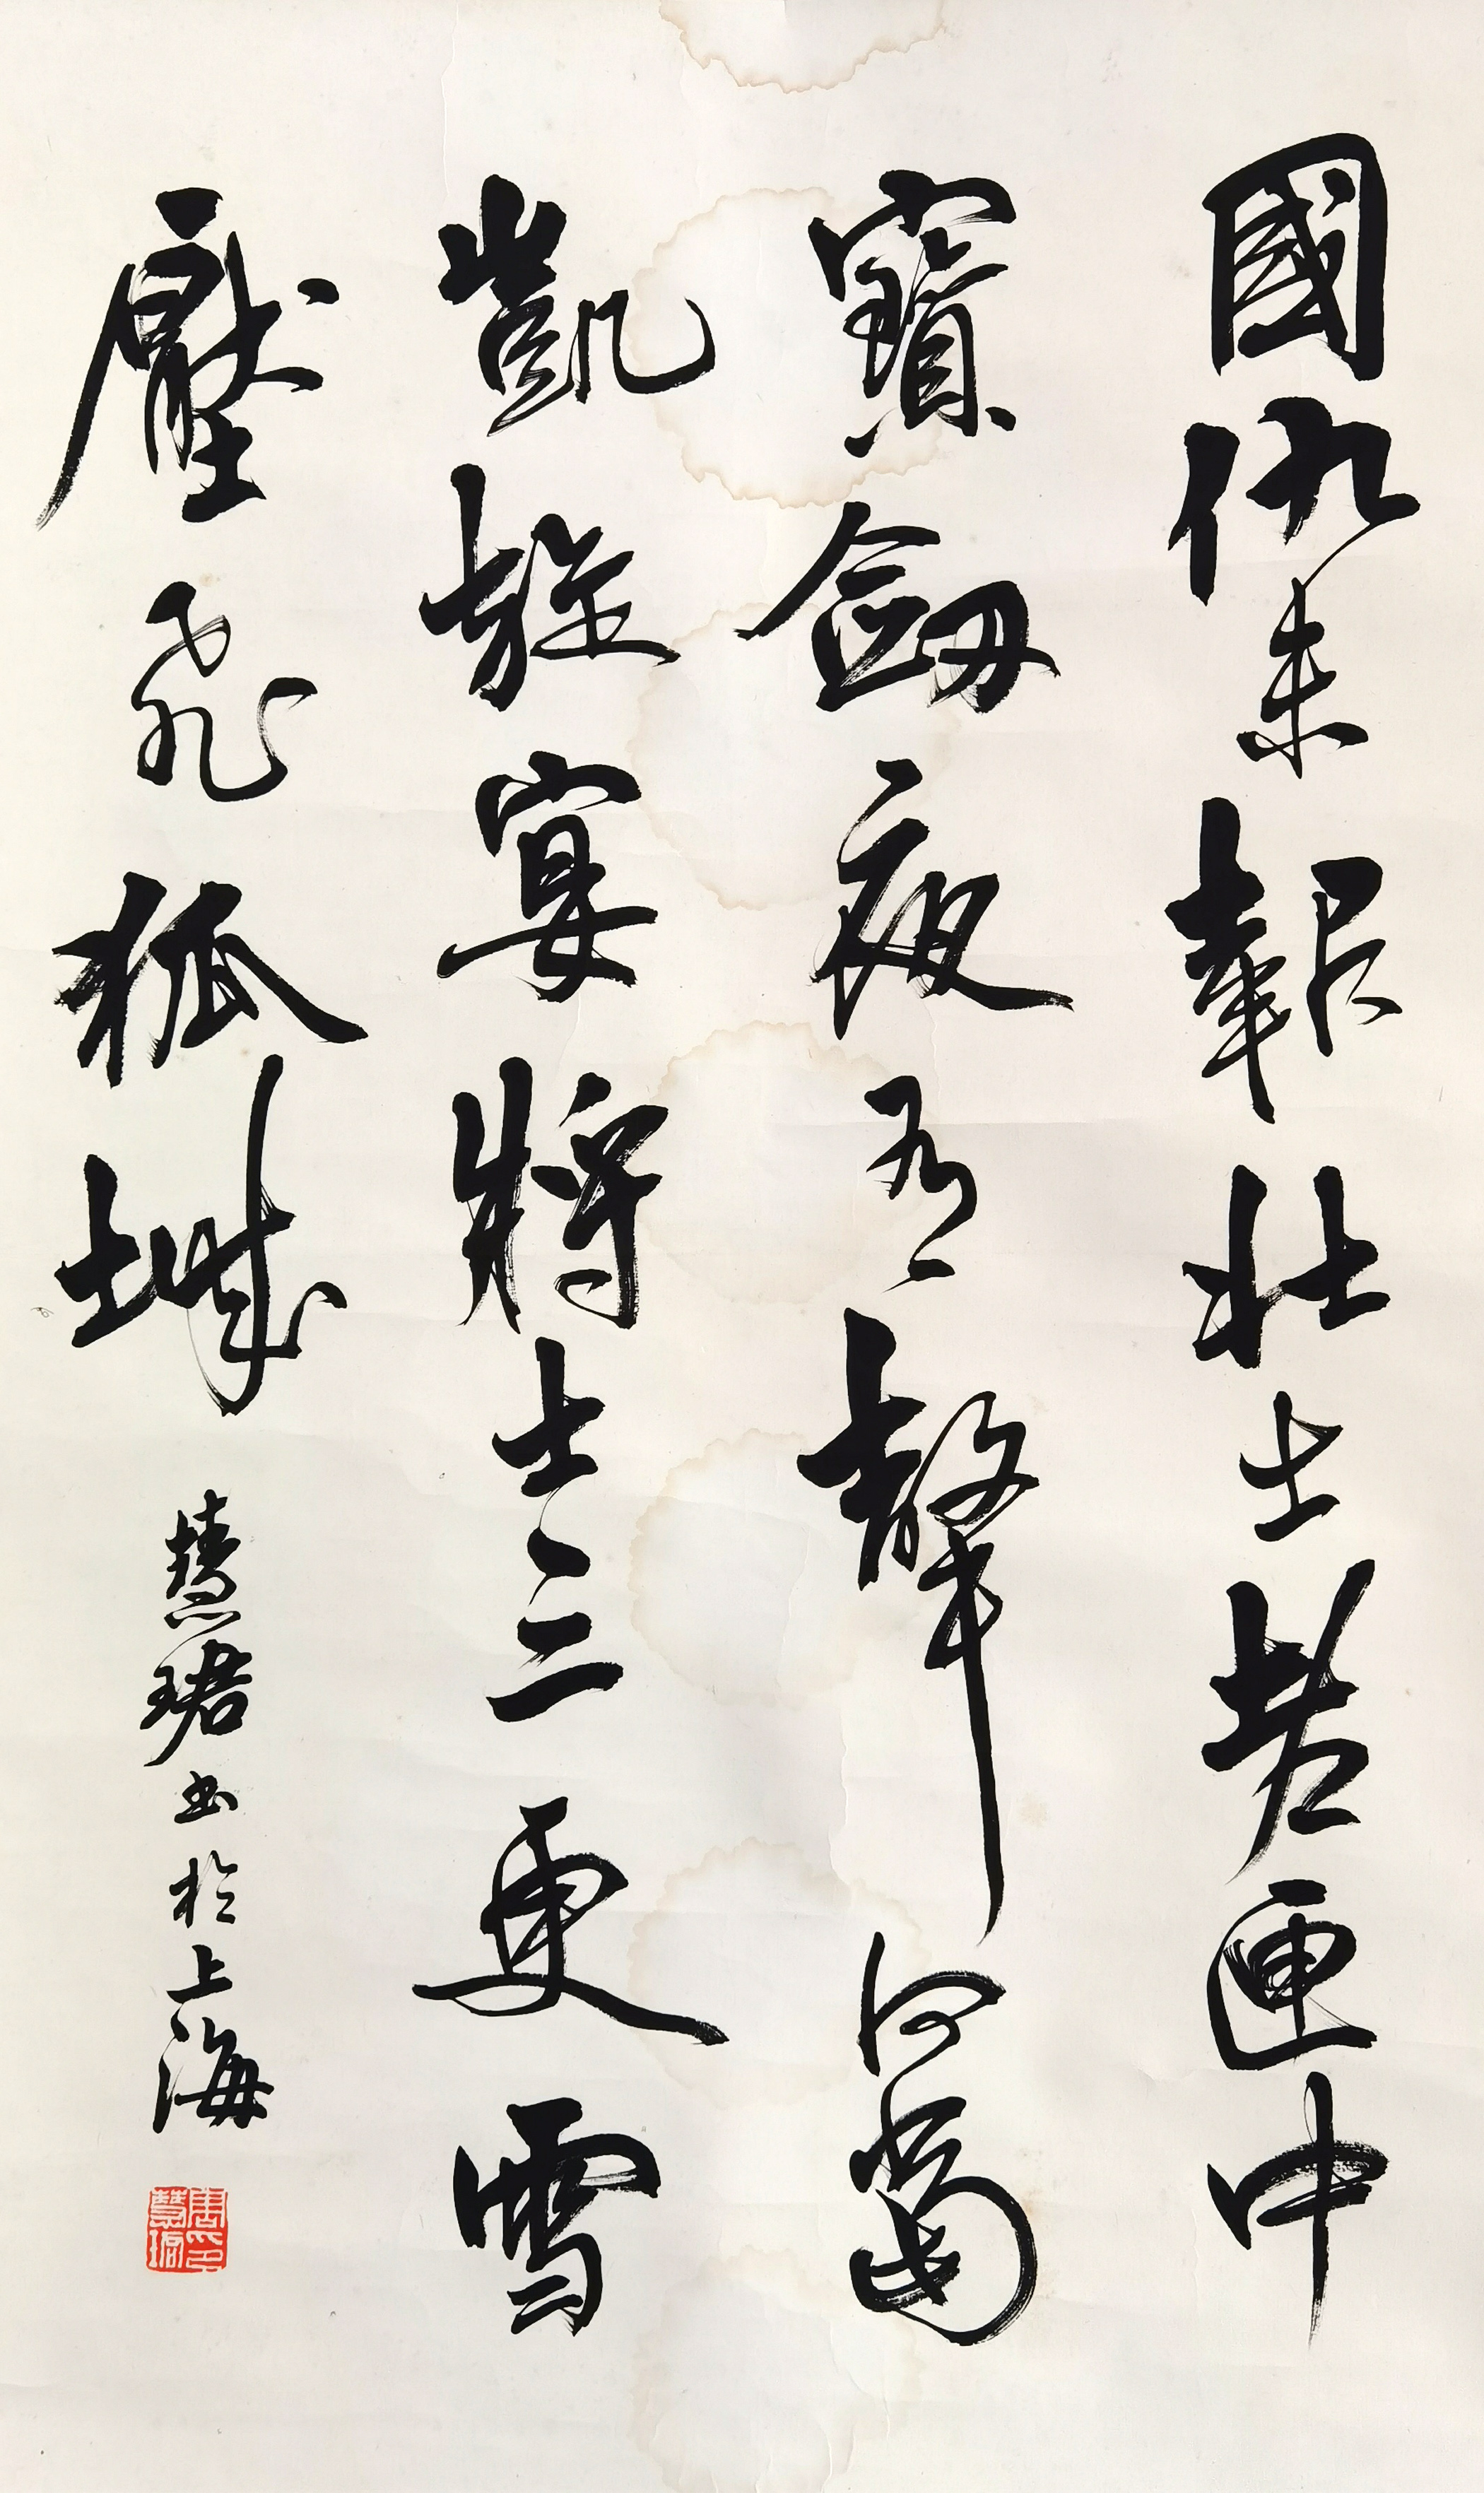 國仇未報壯士老匣中
寶劔夜有聲何當
凱旋宴將士三更雪
壓飛狐城
慧珺書於上海
周慧珺印